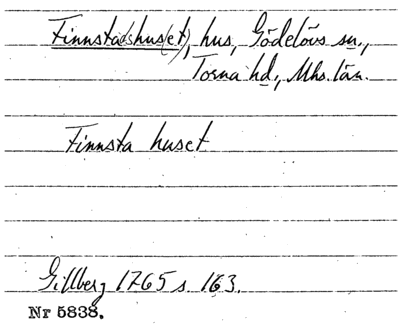 Finnsta(ds)hus(et), hus, Gödelövs sn.,
Torna hd., Mhs. län.
Finnsta huset
Gillberg 1765 s 163.
Nr 5838.